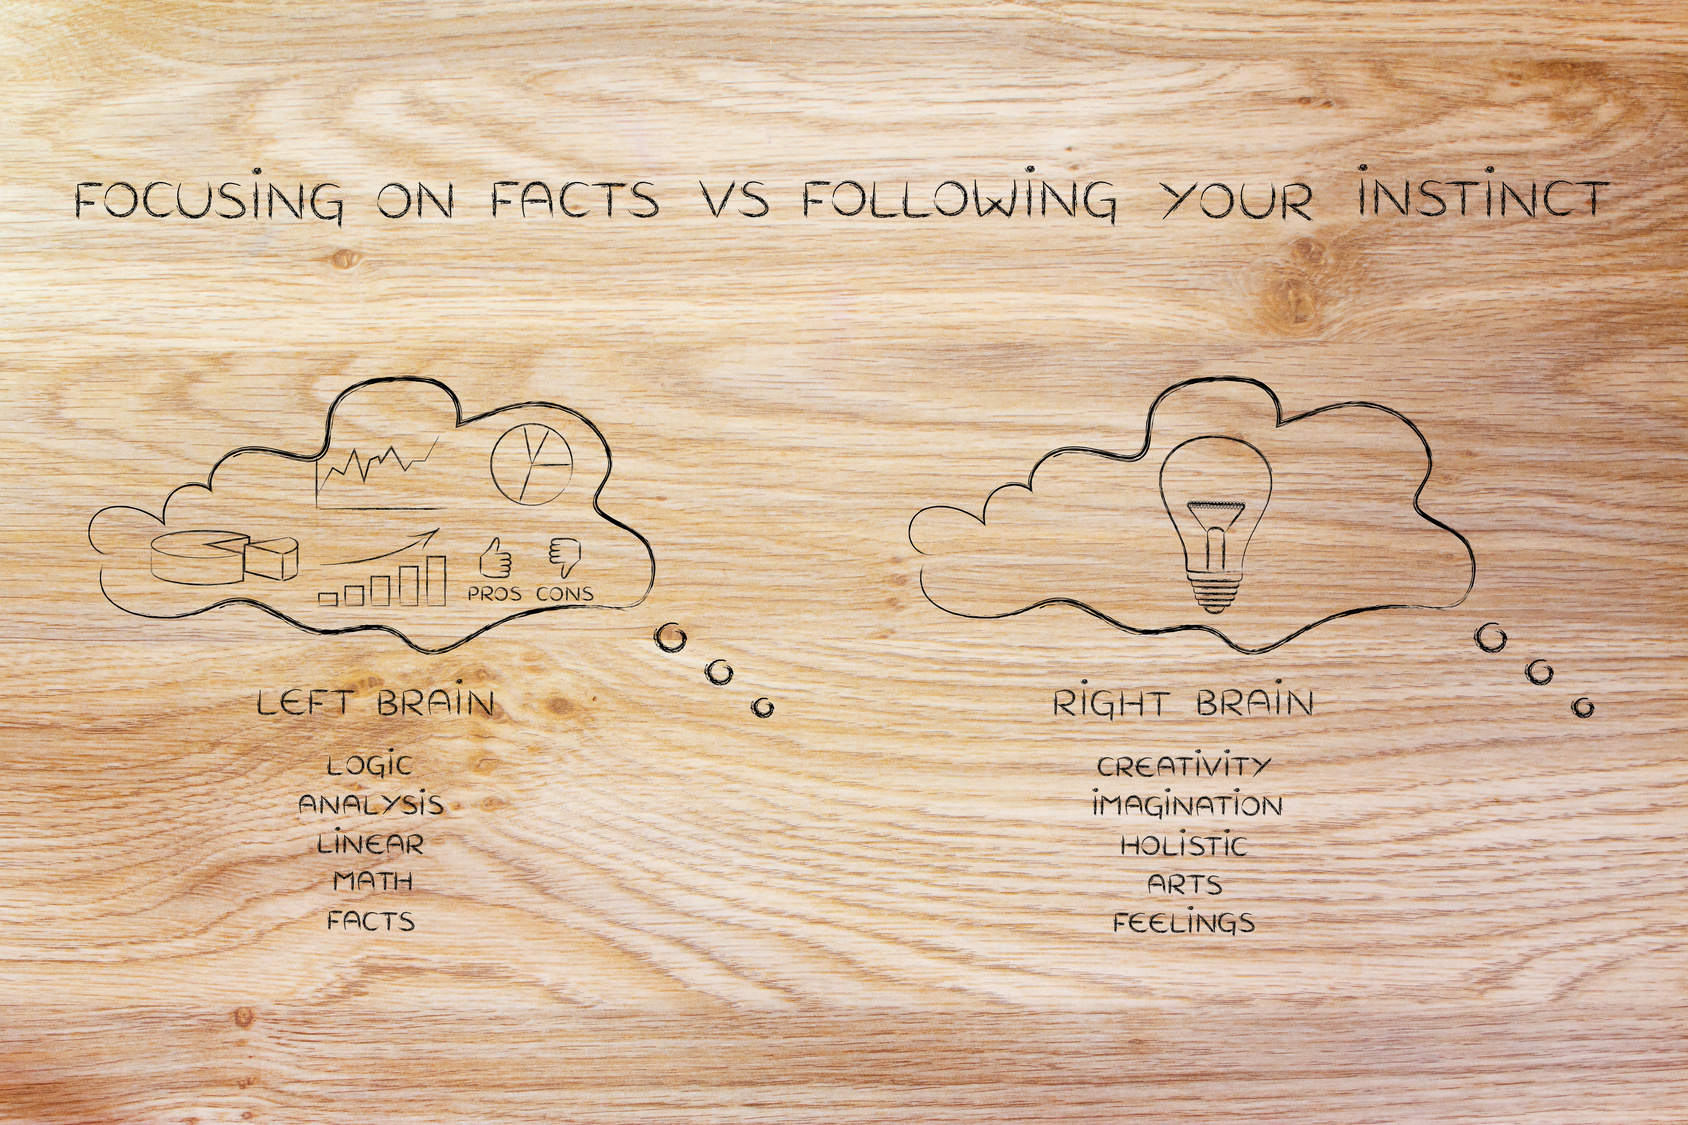 FOCUSING ON FACTS VS FOLLOWING YOUR INSTINCT
PROS CONS
LEFT BRAIN
LOGIC
ANALYSIS
LINEAR
MATH
FACTS
RIGHT BRAIN
CREATIVITY
IMAGINATION
HOLISTIC
ARTS
FEELINGS